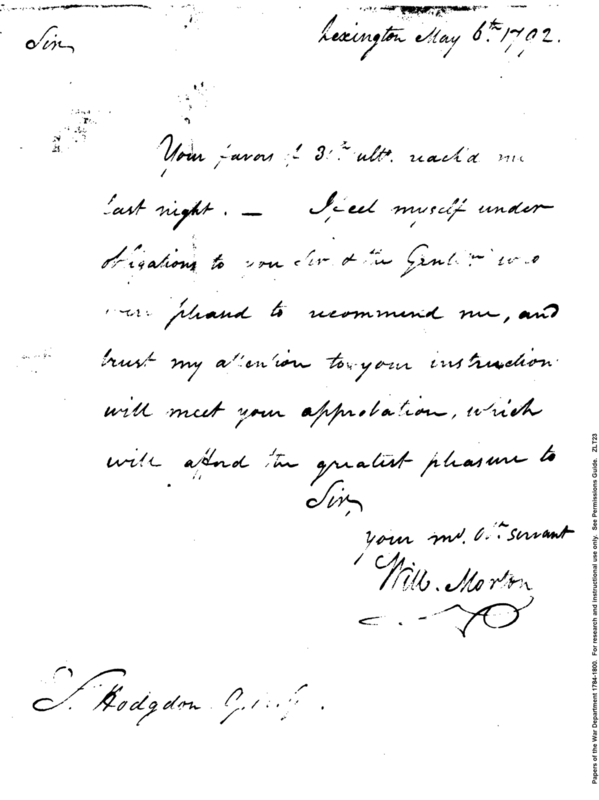 Lexington May 6th. 1792.
Sir,
Your favors of 30th ult. reach'd me
last night. — I feel myself under
obligations to you Sir & the Gentlm who
were pleased to recommend me, and
trust my attention to your instruction
will meet your approbation, which
will afford the greatest pleasure to
Sir,
your mo. Obt. servant
Will. Morton
S. Hodgdon
Papers of the War Department 1784-1800. For research and instructional use only. See Permissions Guide. ZLT23